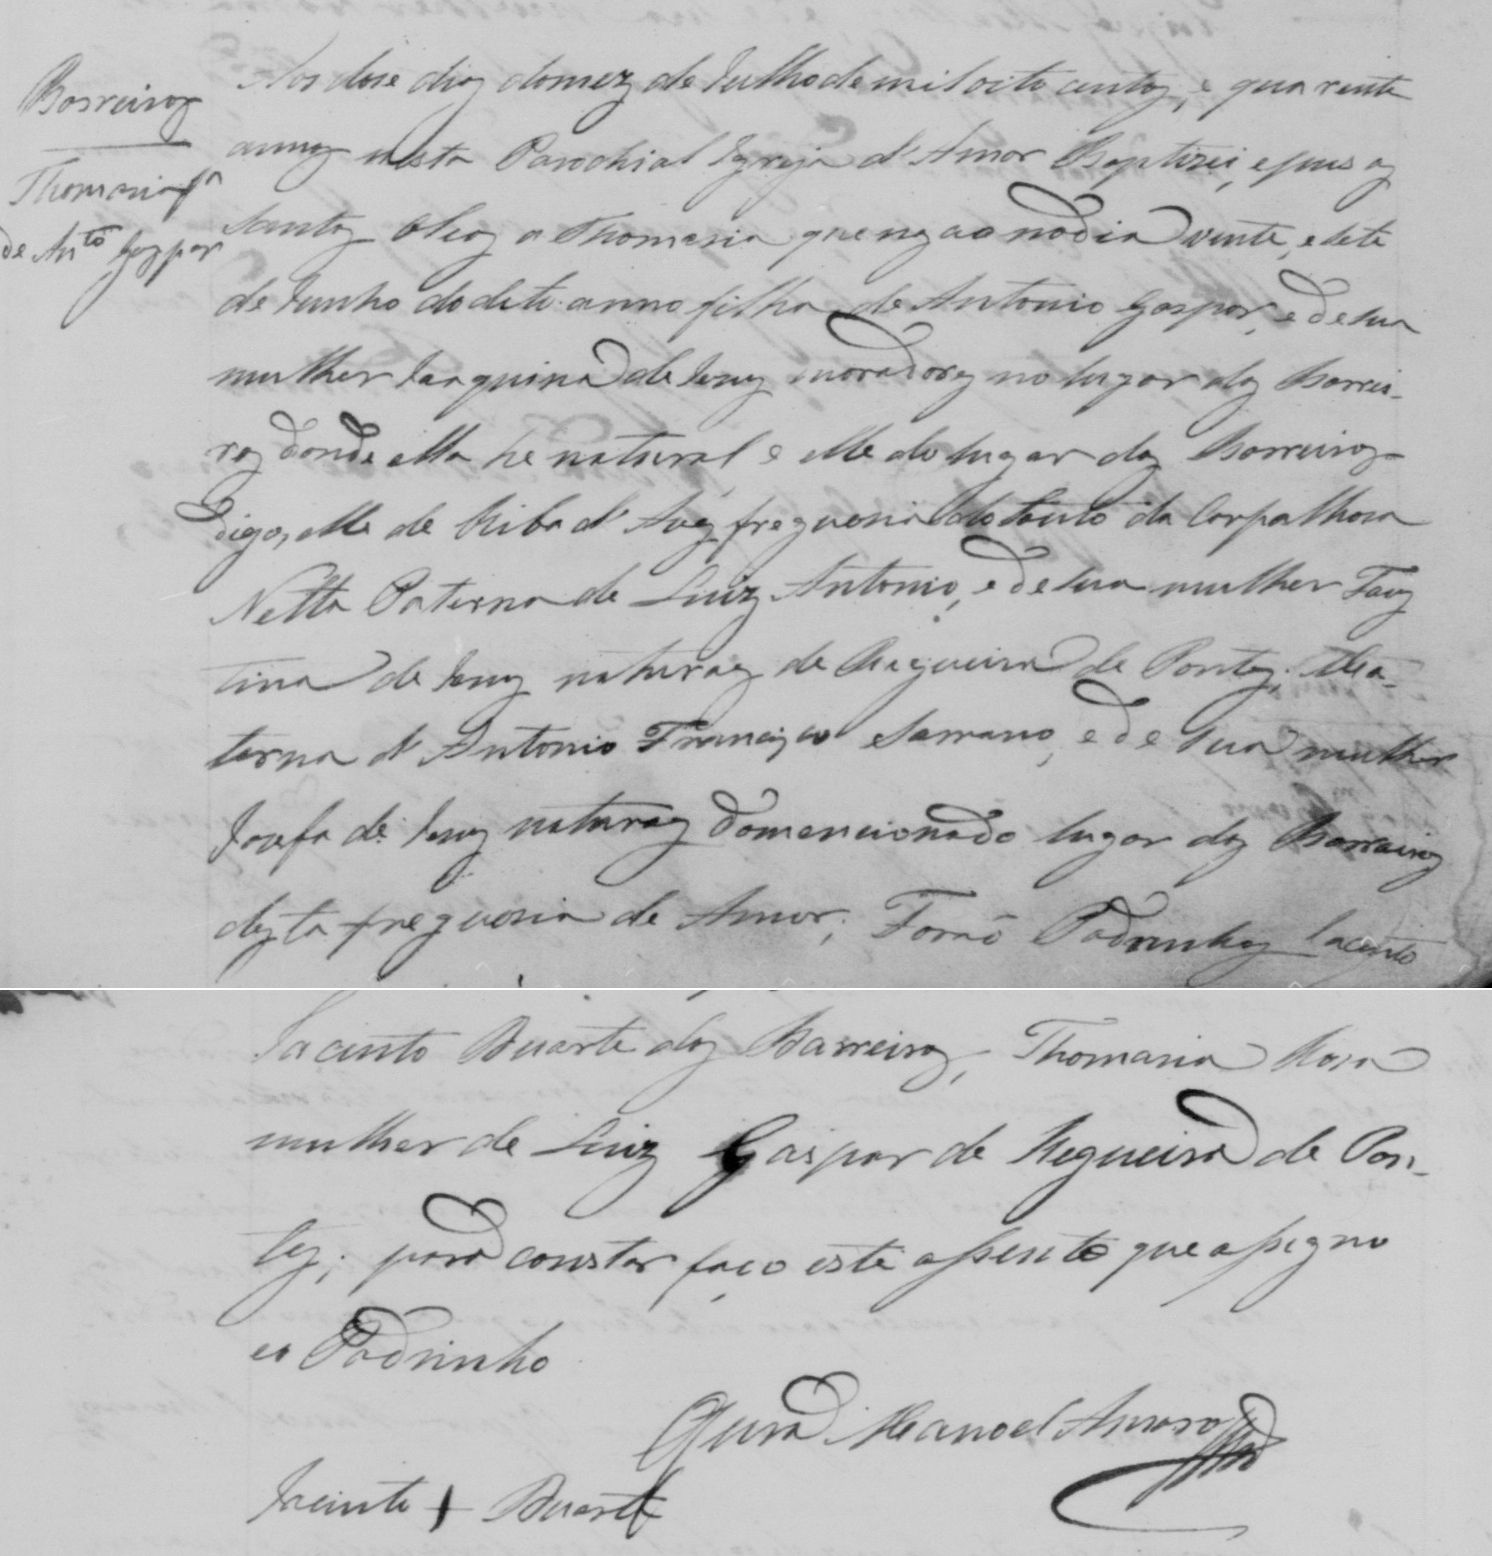 Barreiros
Thomasia fa
de Anto Gaspar
Aos dose dias do mez de Julho de mil oito centos, e quarenta
annos nesta Parochial Igreja d'Amor Baptizei, e pus os
Santos Oleos a Thomasia que nasceo no dia vinte, e sete
de Junho do dito anno filha de Antonio Gaspar, e de sua
mulher Joaquina de Jesus moradores no lugar dos Barrei-
ros donde ella he natural e elle do lugar dos Barreiros
digo, elle de Riba d'Aves freguesia do Souto da Carpalhosa
Netta Paterna de Luiz Antonio, e de sua mulher Faus
tina de Jesus naturaes de Regueira de Pontes; Ma-
terna d'Antonio Francisco Serrano, e de sua mulher
Josefa de Jesus naturaes do mencionado lugar dos Barreiros
desta freguesia de Amor; Forão Padrinhos Jacinto
Jacinto Duarte dos Barreiros, Thomasia Rosa
mulher de Luiz Gaspar de Regueira de Pon-
tes; para constar faço este assento que assigno
eo Padrinho
O Cura Manoel Amaro
Jacinto + Duarte